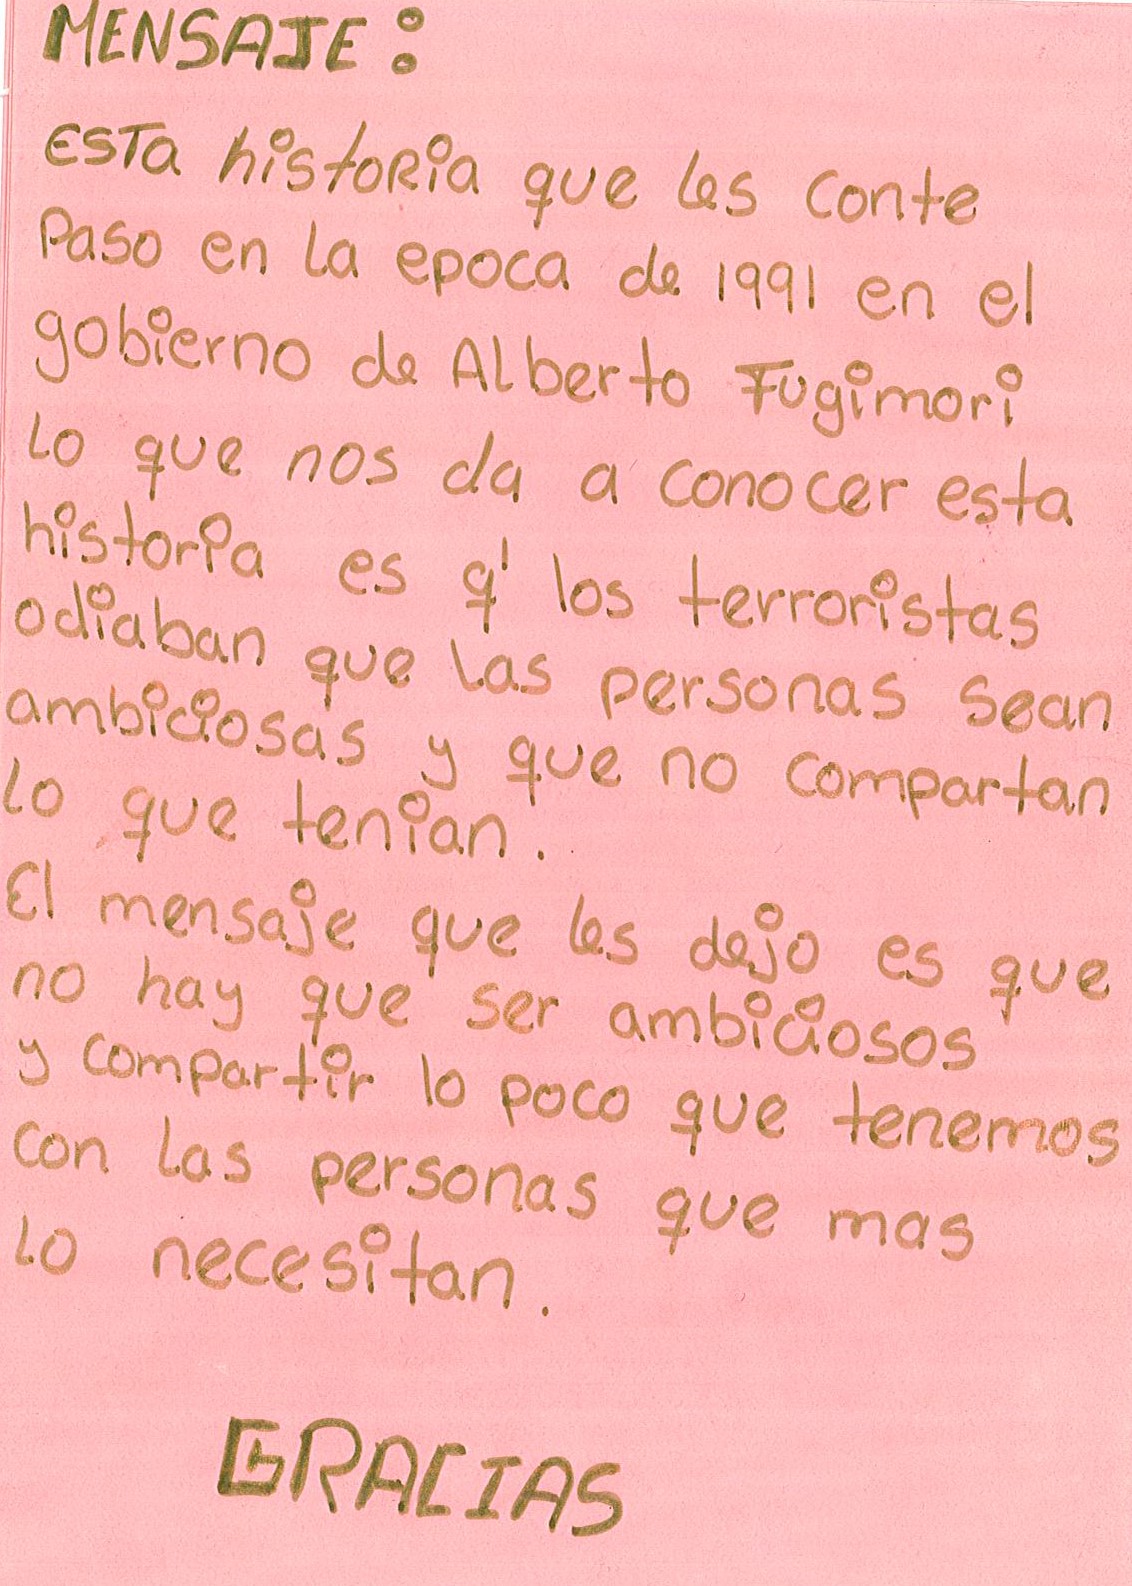 MENSAJE:
ESTa historia que les conte
Paso en la epoca de 1991 en el
gobierno de Alberto Fugimori
lo que nos da a conocer esta
historia es q' los terroristas
odiaban que las personas sean
ambiciosas y que no compartan
lo que tenian.
El mensaje que les dejo es que
no hay que ser ambiciosos
y compartir lo poco que tenemos
con las personas que mas
lo necesitan.
GRACIAS